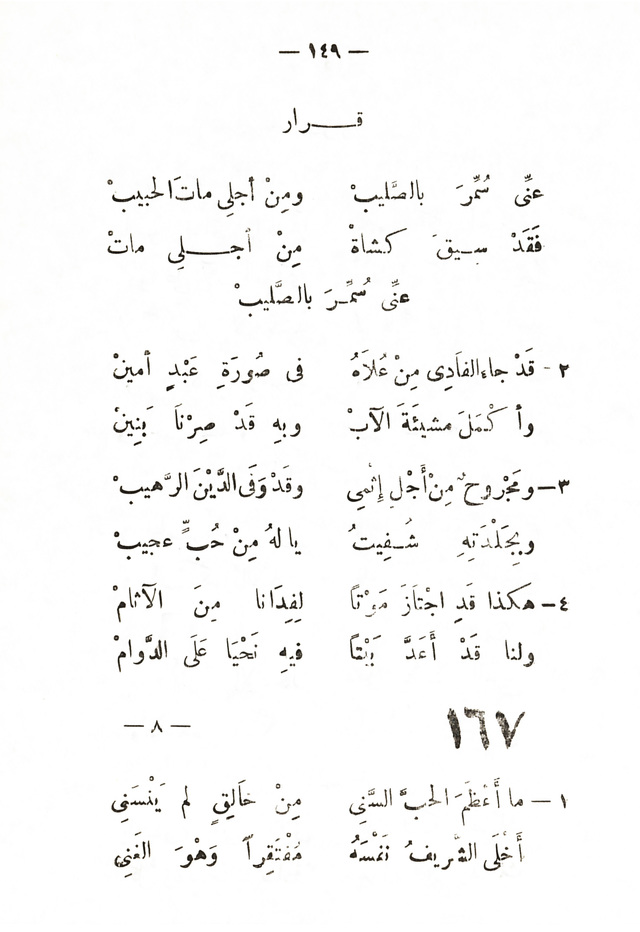 — ١٤٩ —
قـــرار
عنِّى سُمِّرَ بالصَّليبْ ومِنْ أجلِى ماتَ الحبيبْ
فَقَدْ سـيقَ كـشاةْ مِنْ أجـــلِى ماتْ
عنِّى سُمِّـرَ بالصَّليبْ
٢ - قَدْ جاء الفَادِى مِنْ عُلاَهُ فى صُورَةِ عَبْدٍ أمينْ
وأكْمَلَ مشيئَةَ الآبْ وبهِ قَدْ صِرْنَا بَنِينْ
٣ — ومَجْروحٌ مِنْ أَجْلِ إثْمِى وقَدْ وَفَى الدَّيْنَ الرَّهيبْ
وبِجَلْدَتِهِ شُـفِيتُ يا لهُ مِنْ حُبٍّ عجيبْ
٤ — هكذا قَدِ اجْتَازَ مَوْتاً لِفِدَانا مِنَ الآثامْ
ولنا قَدْ أَعَدَّ بَيْتاً فيهِ نَحْيَا عَلَى الدَّوامْ
١٦٧ — ٨ —
١ — ما أَعْظَمَ الحبَّ السَّنِى مِنْ خَالِقٍ لم يَنْسَنِى
أَخْلَى الشَّريفُ نَفْسَهُ مُفْتَقِراً وَهْوَ الغَنِى